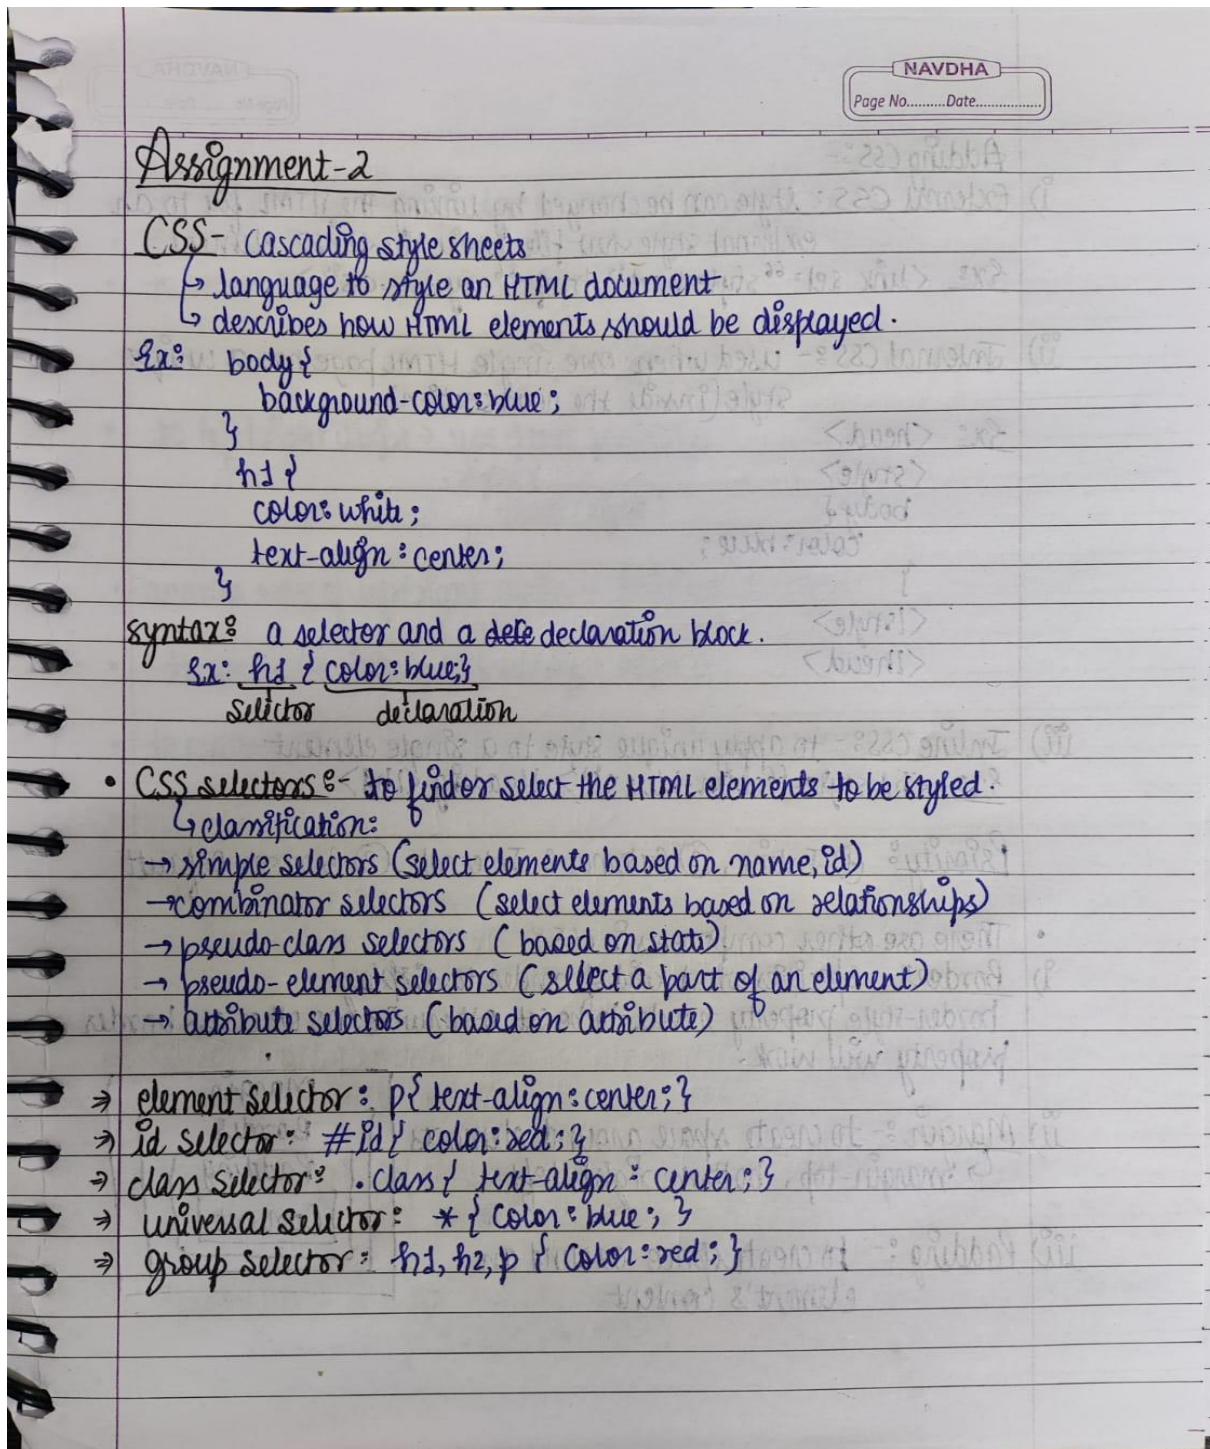 NAVDHA
Page No..........Date.................
Assignment-2
CSS- Cascading style sheets
↳ language to style an HTML document
↳ describes how HTML elements should be displayed.
Ex: body{
background-color: blue;
}
h1 {
color: white;
text-align: center;
}
syntax: a selector and a declaration block.
Ex: h1 { color: blue;}
selector declaration
• CSS selectors:- to find or select the HTML elements to be styled.
↳ classification:
→ simple selectors (select elements based on name, id)
→ combinator selectors (select elements based on relationships)
→ pseudo-class selectors (based on state)
→ pseudo-element selectors (select a part of an element)
→ attribute selectors (based on attribute)
⇒ element selector: p{ text-align: center; }
⇒ id selector: #id{ color: red; }
⇒ class selector: .class{ text-align: center; }
⇒ universal selector: *{ color: blue; }
⇒ group selector: h1, h2, p { color: red; }